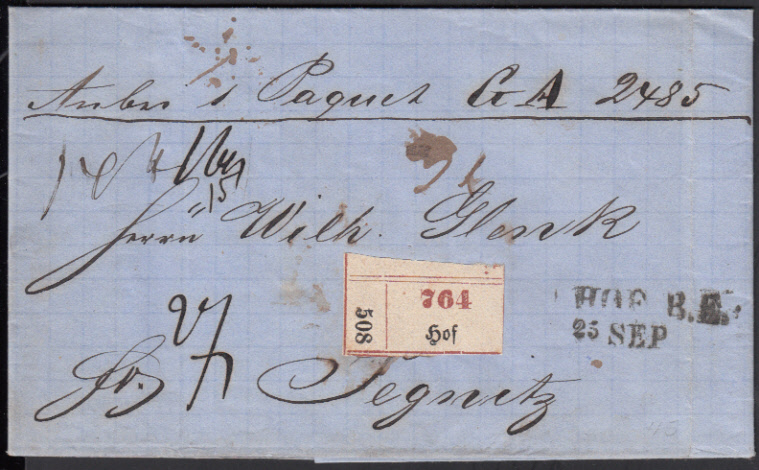 Anbei 1 Paquet GA 2485
15
Herrn Wilh. Glenk
764
Hof
508
HOF B.E.
25 SEP
Segnitz